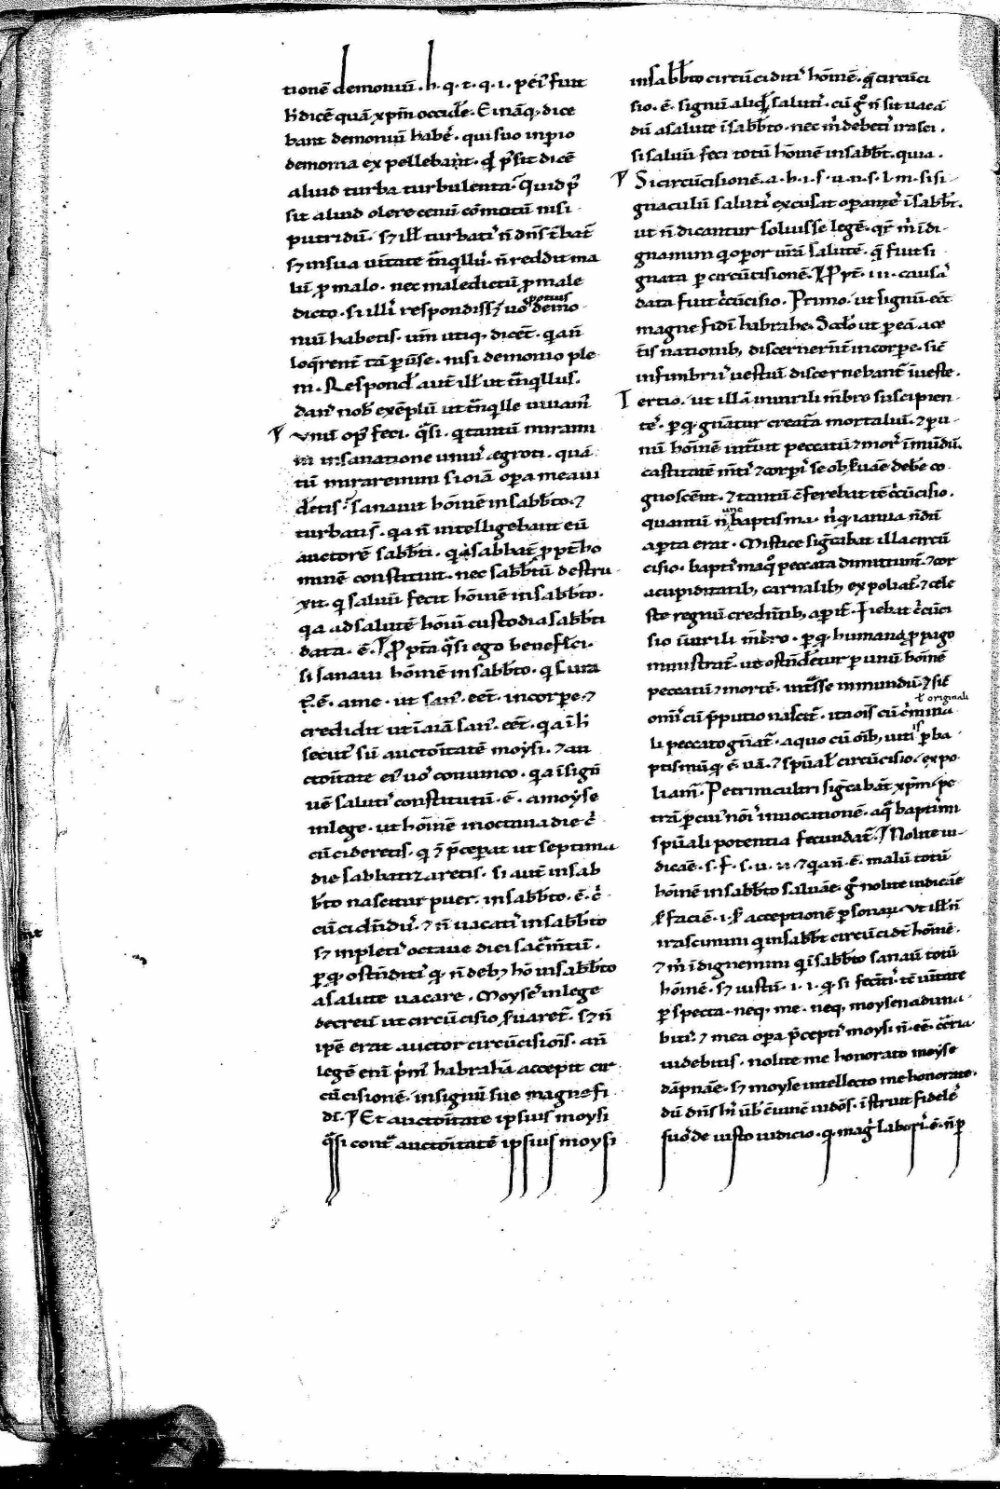 tionē demoniū. h. q. t. q. i. peiꝰ fuit
h dicē quā xpm occidē. Eināq, dice
bant demoniū habē. qui suo inpio
demonia expellebant. qd psit dicē
aliud turba turbulenta. Quid p
sit aliud olere cenū cōmotū nisi
putridū. sꝫ ill turbatꝰ ñ dñs t̄bat
sꝫ in sua uitate t̄nqllꝰ. ñ reddit ma
lū p malo. nec maledictū p male
dicto. si illꝰ respondiss uos potius demo
niū habetis. uim utiq, dicēt. q añ
loqrent tā puse. nisi demonio ple
ni. Respond aut ill ut t̄nqllus.
dans nob exēplū ut t̄nqlle uiuamꝰ
Vnū opꝰ feci. qsi. q tantū mirami
ni in sanatione uniꝰ egroti. quā
tū miraremini si oīā opa mea ui
detis. sanauit hoīnē in sabbto. ⁊
turbatiſ. q a ñ intelligebant eū
auctorē sabbti. q sabbat ppt ho
minē constituit. nec sabbtū destru
xit. q saluū fecit hoīnē in sabbto.
q a ad salutē hoīū custodia sabbti
data. ē. Ppt̄a qsi ego benefici.
si sanaui hoīnē in sabbto. q cura
t. ē. a me. ut sanꝰ. eēt. in corpe. ⁊
credidit ut ī aīa sanꝰ. eēt. q a ī h
secutꝰ sū auctoitatē moysi. ⁊ au
ctoitate eiꝰ uos conuinco. q a ī sign
uē salutiꝰ constitutū. ē. a moyse
in lege. ut hoīnē in octaua die cꝰ
cū cideretis. q ⁊ pcepat ut septima
die sabbatizaretis. si aut in sab
bto nascitur puer. in sabbto. ē. cꝰ
cū cidēdꝰ. ⁊ ñ uacatꝰ in sabbto
sꝫ inpletꝰ octaue diei sacm̄tū.
p q ostēditꝰ q ñ deb, ho in sabbto
a salute uacare. Moyses in lege
decreuit ut circūcisio suaret. sꝫ ñ
ipē erat auctor circūcisiois. añ
legē eni pm habrahā accepit cir
cū cisionē. in signū sue magne fi
di. Et auctoitate ipsius moysi
qsi cont auctoitatē ipsius moysi
in sabbto circū ciditꝰ hoīnē. q circūci
sio. ē. signū aliqd salutꝰ. cū g ñ sit uacā
dū a salute ī sabbto. nec m debetꝰ irasci.
si saluū feci totū hoīnē in sabbt. quia.
Si circūcisionē. a. h. i. s. u. n. s. l. m. si si
gnaculū salutꝰ excusat opantē ī sabbt.
ut ñ dicantur soluisse legē. qr m īdi
gnamini q opor urā salutē. q fuit si
gnata p circūcisionē. Ppt. iii. causas
data fuit ccūcisio. Primo. ut signū eēt
magne fidei habrahe. Scdo ut p eā a ce
tis nationib, discernerent in corpe. sic
in fimbriis uestiū discernebant in ueste.
Tertio. ut illā in uirili mbro suscipien
tes. p q gnatur creata mortaliū. ⁊ p u
nū hoīnē intuit peccatū ⁊ morꝰ in mūdū.
castitatē mtꝰ ⁊ corpꝰ se obseruāe debē co
gnoscēnt. ⁊ tantū cferebat tē ccūcisio.
quantū nunc baptisma. nꝰ q ianua ñdū
apta erat. Mistice signabat illa circū
cisio. baptisma q peccata dimittunt. ⁊ cor
a cupiditatib, carnalib, expoliat. ⁊ cele
ste regnū credētib, apit. Fiebat ccūci
sio in uirili mbro. p q humana ppago
ministrat. ut ostēderetur p unū hoīnē
peccatū ⁊ mortē. intsse in mundū. ⁊ sic
omꝰ cū pputio nascit. ita oīs cū cmina
l originali
li peccato gnat. a quo cū oīb, uitiis p ba
ptismū q ē ua. ⁊ spual circūcisio. expo
liamꝰ. Petrini cultri signabāt xpm. pe
trā p cuiꝰ noīs inuocationē. aq baptismi
spuali potentia fecundat. Nolite iu
dicāē. s. f. s. u. ⁊ q añ. ē. malū totū
hoīnē in sabbto saluāe. g nolite iudicāe
s faciē. i. s acceptionē psonaꝝ. Vt ill ñ
irascimini q in sabbt circūcidēt hoīnē.
⁊ m īdignemini q ī sabbto sanaui totū
hoīnē. sꝫ iustū. i. i. q si fecitꝰ. tē uitate
pspecta. neq, me. neq, moysen aduna
bitꝰ. ⁊ mea opa pceptꝰ moysi ñ. eē. cc̄ria
uidebitis. nolite me honorato moyse
dāpnāe. sꝫ moyse intellecto me honorate.
dū dñs hꝰ ūb cuncē iudōs. īstruit fideles
suos de iusto iudicio. q magꝰ laborꝰ. ē. ñ p